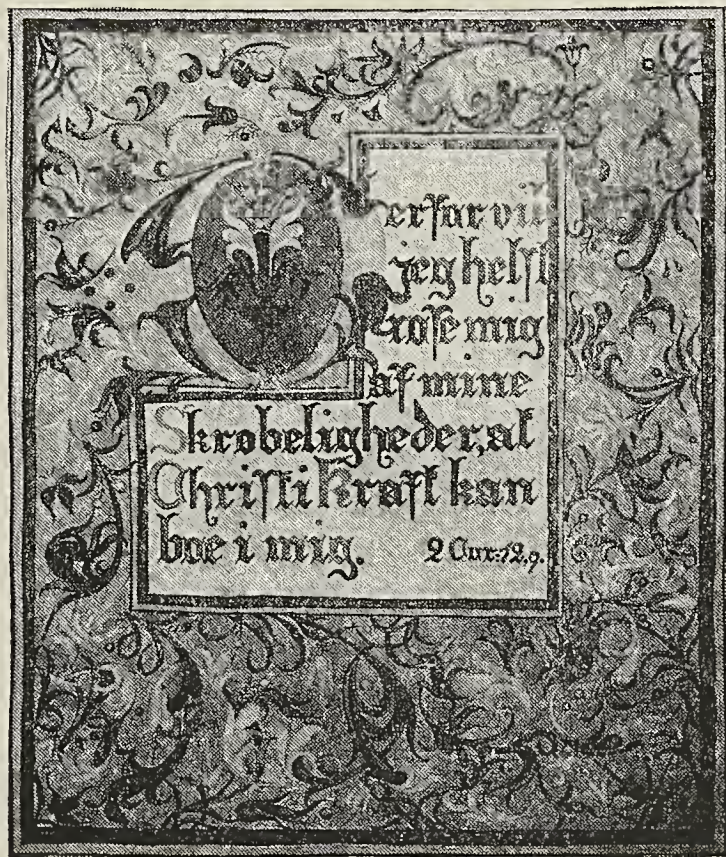 Derfor vil
jeg helst
rose mig
af mine
Skrøbeligheder, at
Christi Kraft kan
boe i mig. 2 Cor: 12,9.